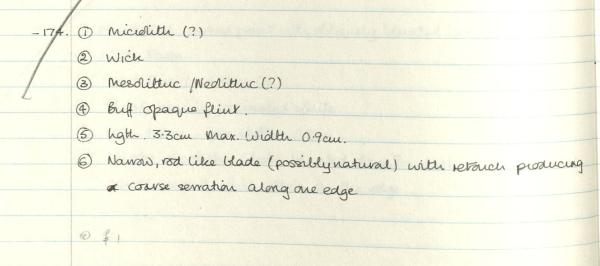 -174. ① Microlith (?)
② Wick
③ Mesolithic /Neolithic (?)
④ Buff opaque flint.
⑤ lgth. 3.3cm Max. Width 0.9cm.
⑥ Narrow, rod like blade (possibly natural) with retouch producing
coarse serration along one edge